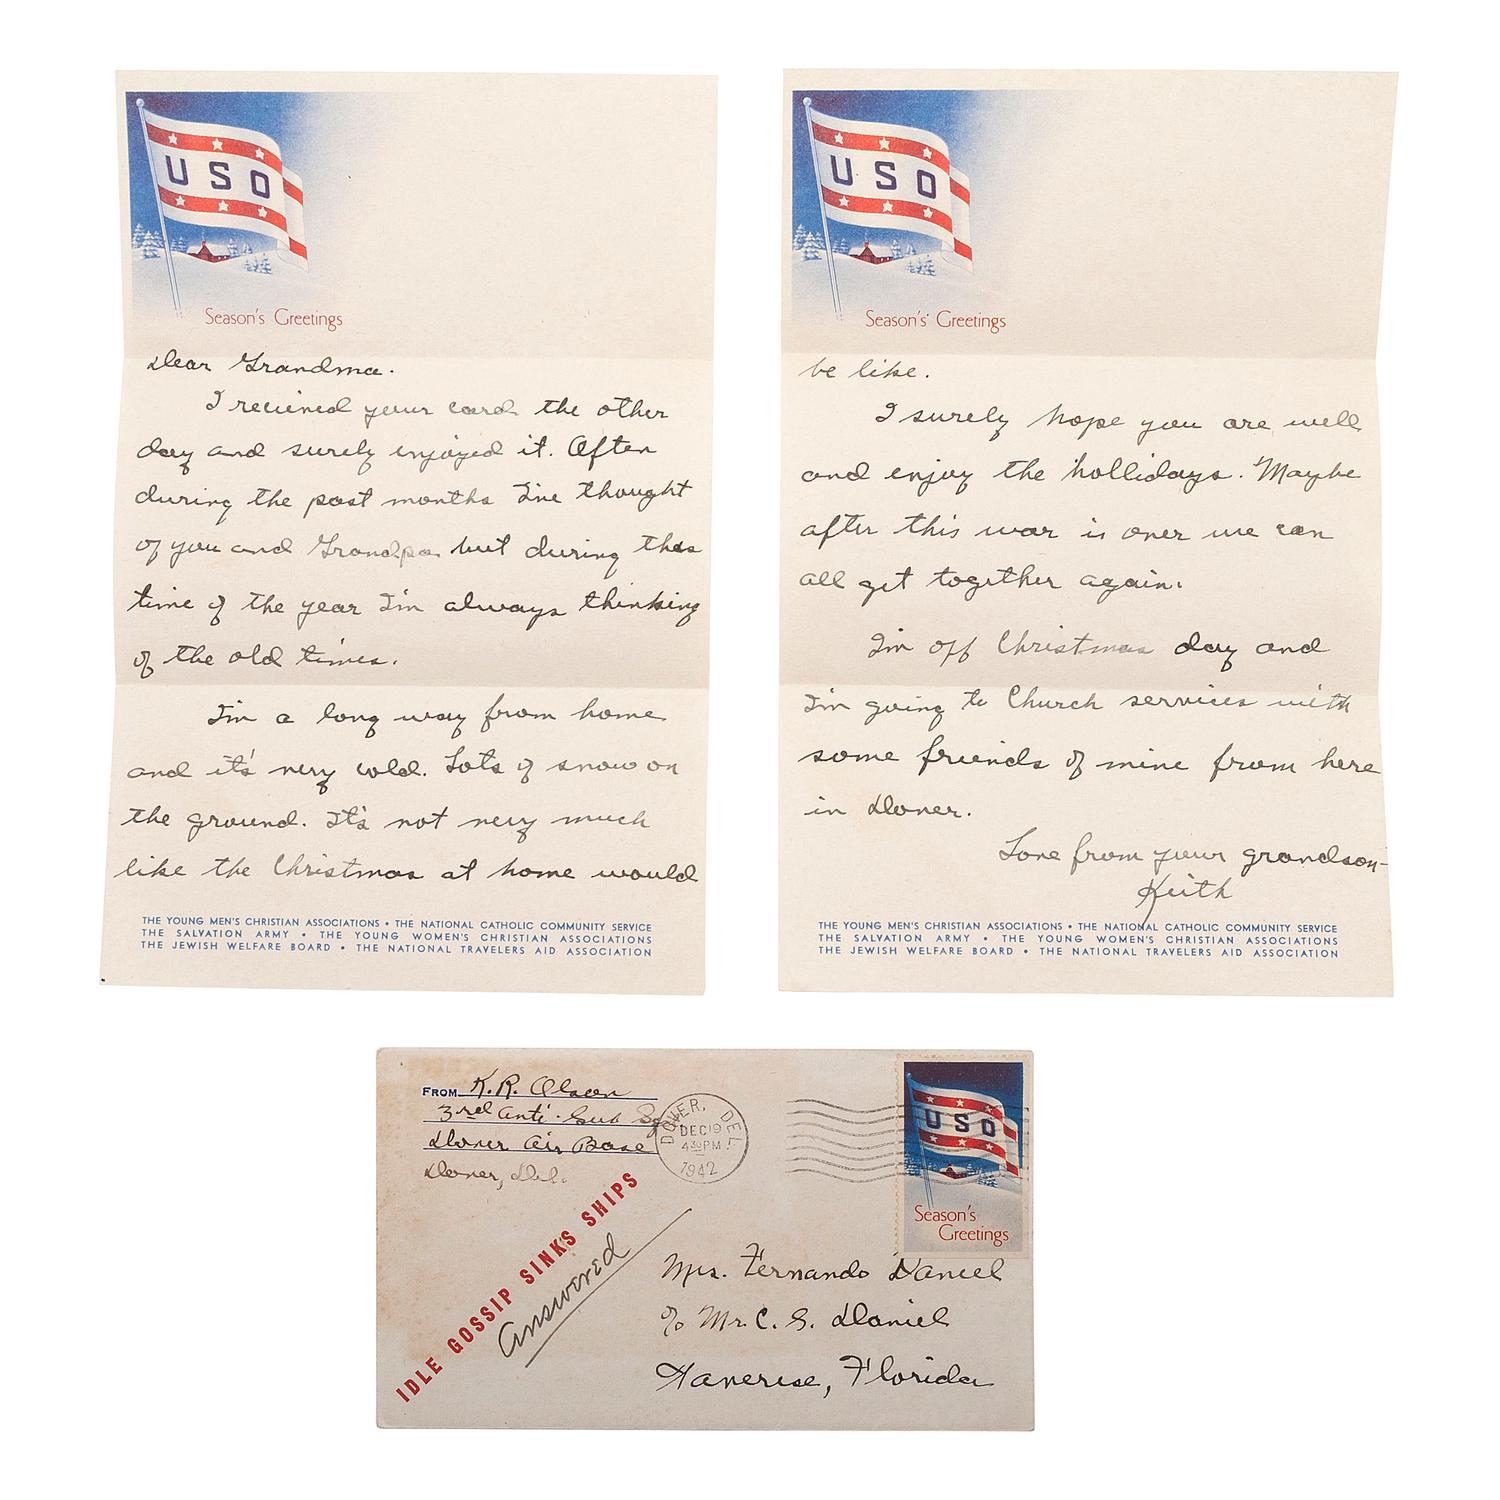 USO
Season's Greetings
Dear Grandma.
I received your card the other
day and surely enjoyed it. Often
during the past months I've thought
of you and Grandpa but during this
time of the year I'm always thinking
of the old times.
I'm a long way from home
and it's very cold. Lots of snow on
the ground. It's not very much
like the Christmas at home would
THE YOUNG MEN'S CHRISTIAN ASSOCIATIONS • THE NATIONAL CATHOLIC COMMUNITY SERVICE
THE SALVATION ARMY • THE YOUNG WOMEN'S CHRISTIAN ASSOCIATIONS
THE JEWISH WELFARE BOARD • THE NATIONAL TRAVELERS AID ASSOCIATION
USO
Season's Greetings
be like.
I surely hope you are well
and enjoy the hollidays. Maybe
after this war is over we can
all get together again.
I'm off Christmas day and
I'm going to Church services with
some friends of mine from here
in Dover.
Love from your grandson-
Keith
THE YOUNG MEN'S CHRISTIAN ASSOCIATIONS • THE NATIONAL CATHOLIC COMMUNITY SERVICE
THE SALVATION ARMY • THE YOUNG WOMEN'S CHRISTIAN ASSOCIATIONS
THE JEWISH WELFARE BOARD • THE NATIONAL TRAVELERS AID ASSOCIATION
FROM K. R. Olson
3rd Anti-Sub Sq
Dover Air Base
Dover, Del.
DOVER, DEL.
DEC 19
4 30 PM
1942
USO
Season's
Greetings
IDLE GOSSIP SINKS SHIPS
Answered
Mrs. Fernando Daniel
c/o Mr. C. S. Daniel
Florida